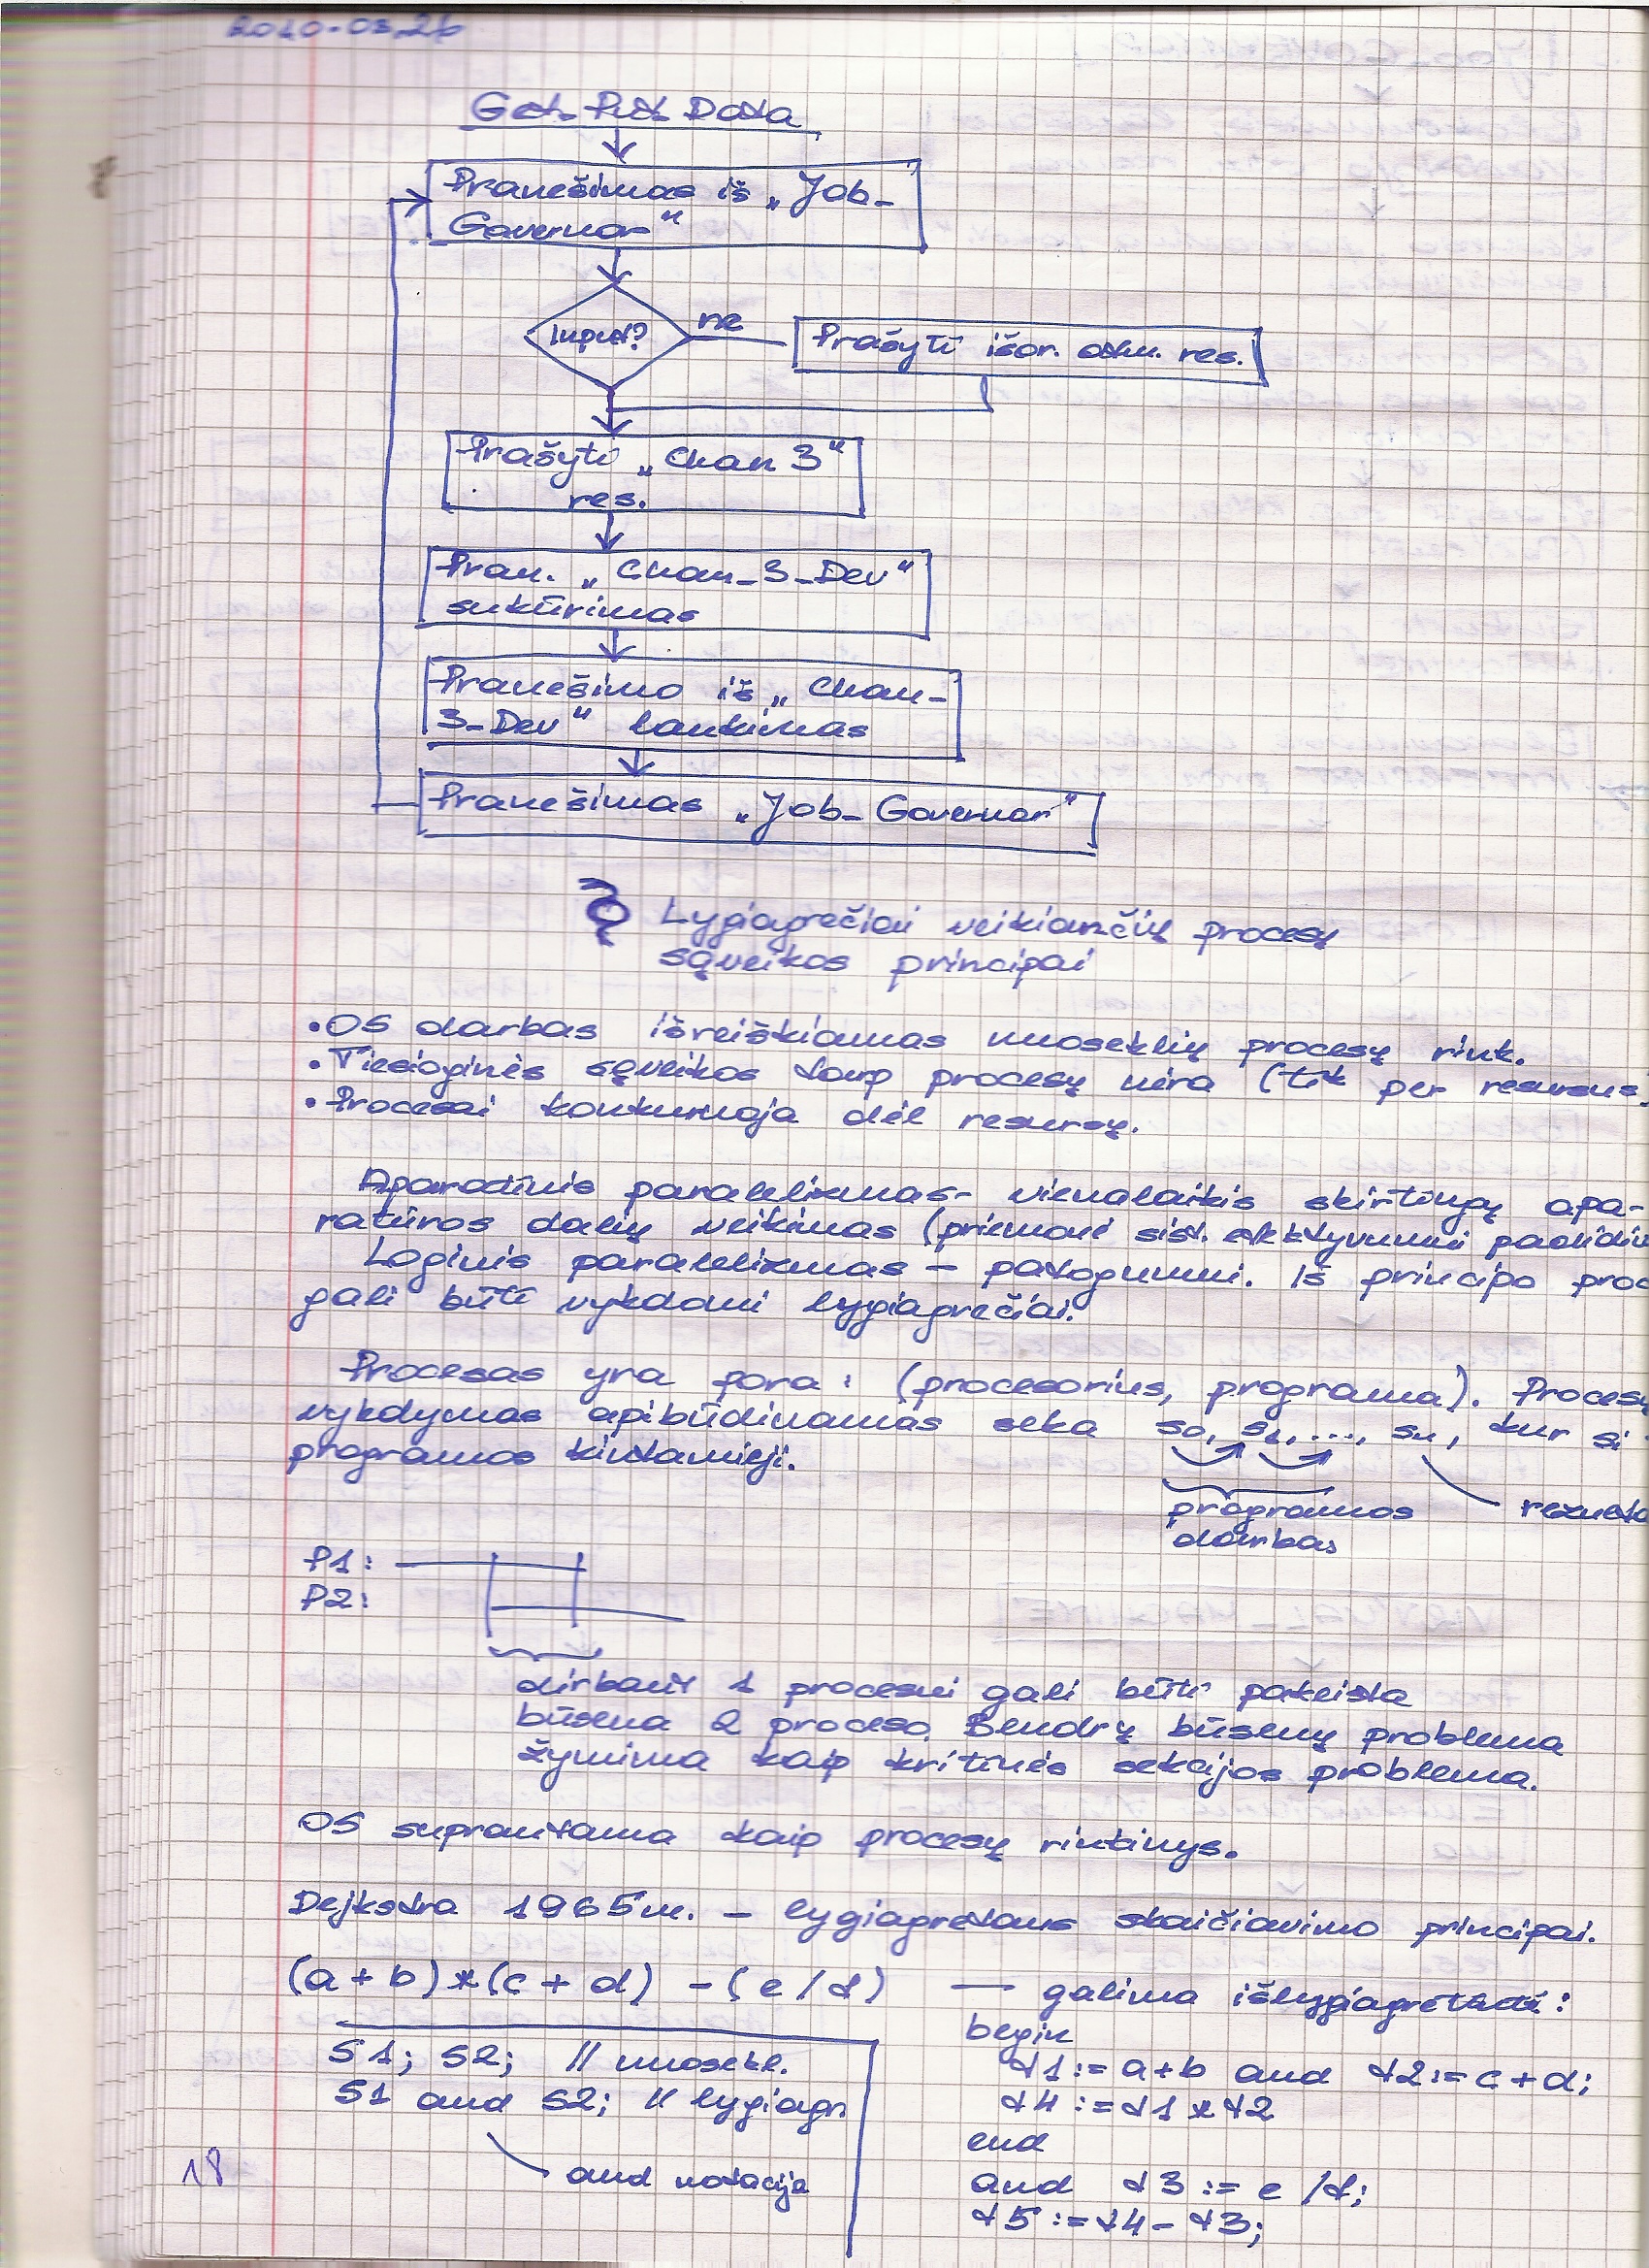 2010-03-26
Get_Put_Data
Pranešimas iš „Job_
Governor“
Input?
ne
Prašyti išor. atm. res.
Prašyti „Chan 3“
res.
Pran. „Chan_3_Dev“
sukūrimas
Pranešimo iš „Chan_
3_Dev“ laukimas
Pranešimas „Job_Governor“
Lygiagrečiai veikiančių procesų
sąveikos principai
• OS darbas išreiškiamas nuoseklių procesų rink.
• Tiesioginės sąveikos tarp procesų nėra (tik per resursus)
• Procesai konkuruoja dėl resursų.
Aparatinis paralelizmas - vienalaikis skirtingų apa-
ratūros dalių veikimas (priemonė sist. efektyvumui padidin
Loginis paralelizmas – patogumui. Iš principo proc
gali būti vykdomi lygiagrečiai.
Procesas yra pora: (procesorius, programa). Procesų
vykdymas apibūdinamas seka s0, s1, ..., sn, kur si
programos kintamieji.
programos
darbas
rezulta
P1:
P2:
dirbant 1 procesui gali būti pakeista
būsena 2 proceso. Bendrų būsenų problema
žymima kaip kritinės sekcijos problema.
OS suprantama kaip procesų rinkinys.
Dejkstra 1965m. – lygiagretaus skaičiavimo principai.
(a+b)*(c+d) - (e/f) — galima išlygiagretinti:
S1; S2; // nuosekl.
S1 and S2; // lygiagr
and notacija
begin
t1:=a+b and t2:=c+d;
t4:=t1*t2
end
and t3:=e/f;
t5:=t4-t3;
18